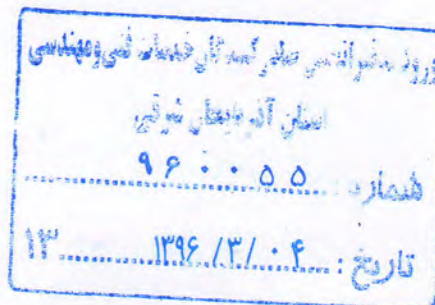 ورود دفتر انجمن صادرکنندگان خدمات فنی و مهندسی
استان آذربایجان شرقی
شماره: ۹۶۰۰۵۵
تاریخ: ۱۳۹۶/۳/۰۴ ۱۳